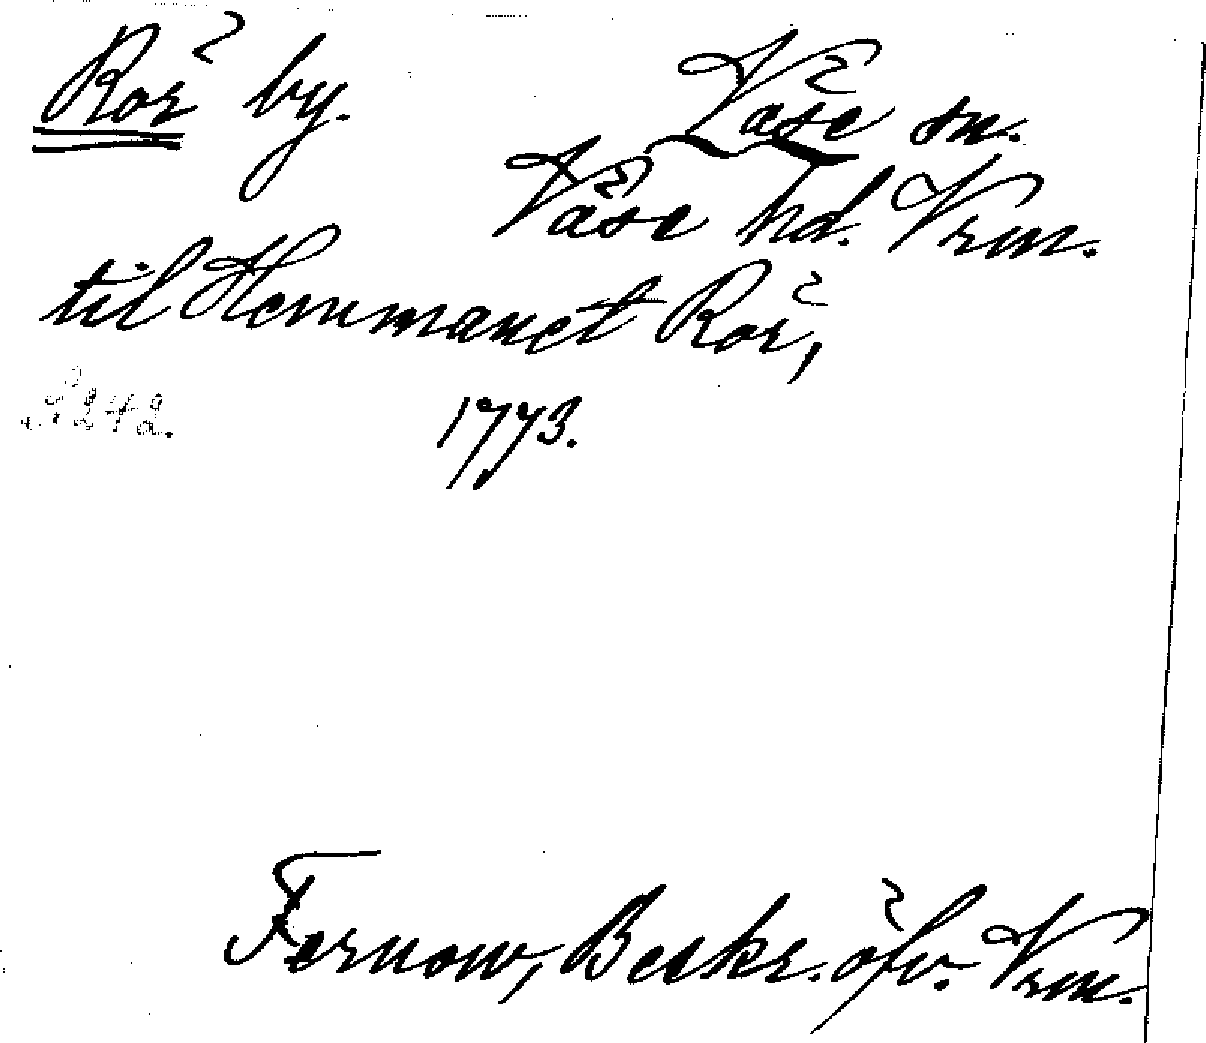 Rör by. Väse sn.
Väse hd. Vrm.
til Hemmanet Rör,
S. 242. 1773.
Fernow, Beskr. öfv. Vrm.